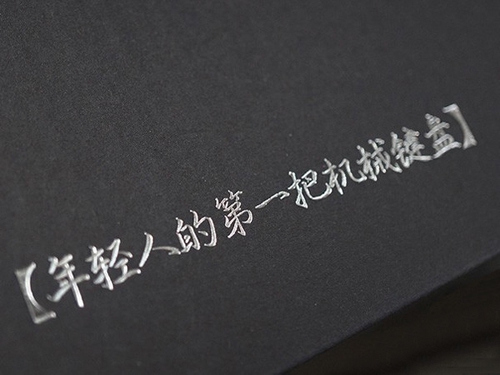 【年轻人的第一把机械键盘】